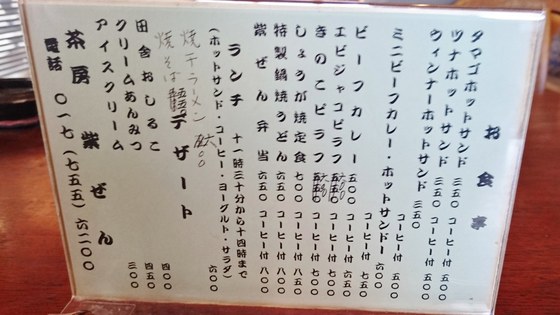 お食事
タマゴホットサンド 三五〇 コーヒー付 五〇〇
ツナホットサンド 三五〇 コーヒー付 五〇〇
ウィンナーホットサンド 三五〇
コーヒー付 五〇〇
ミニビーフカレー・ホットサンド 六〇〇
コーヒー付 七五〇
ビーフカレー 五〇〇 コーヒー付 六五〇
エビジャコピラフ コーヒー付 七〇〇
きのこピラフ コーヒー付 七〇〇
しょうが焼定食 七〇〇 コーヒー付 八五〇
特製鍋焼うどん 六五〇 コーヒー付 八〇〇
紫ぜん弁当 六五〇 コーヒー付 八〇〇
ランチ 十一時三十分から十四時まで
(ホットサンド・コーヒー・ヨーグルト・サラダ) 六〇〇
焼干ラーメン 六〇〇
焼そば
デザート
田舎おしるこ 四〇〇
クリームあんみつ 四五〇
アイスクリーム 三〇〇
茶房 紫ぜん
電話 〇一七(七五五)六二〇〇